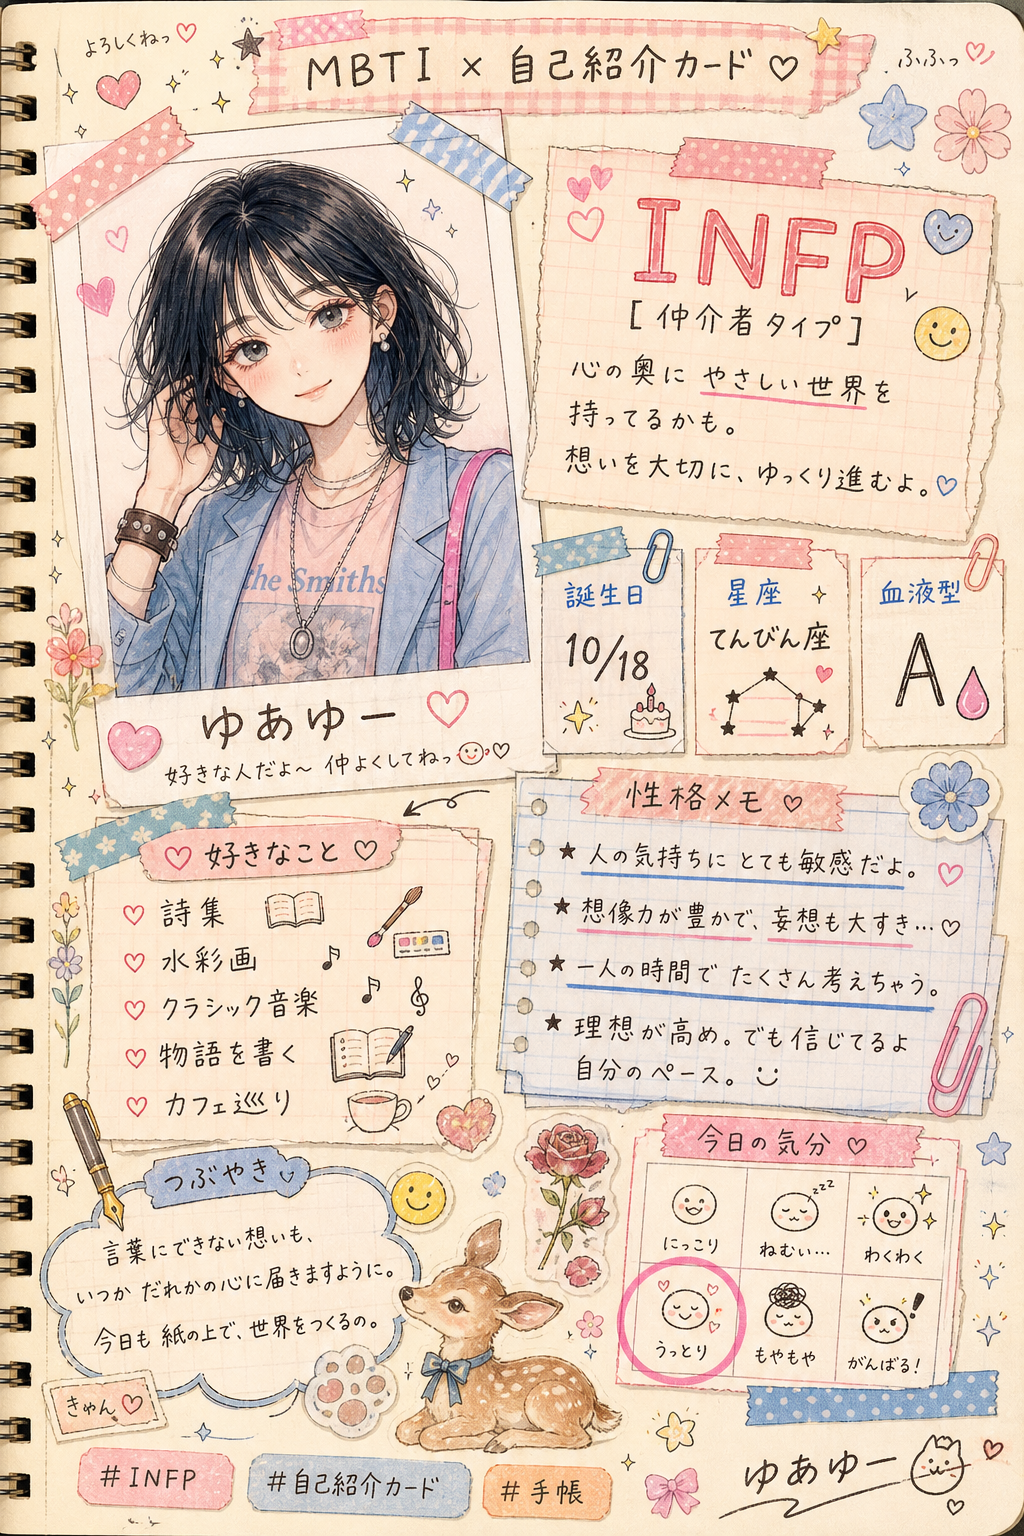 よろしくねっ♡
MBTI × 自己紹介カード ♡
ふふっ♡
INFP
[仲介者タイプ]
心の奥に やさしい世界を
持ってるかも。
想いを大切に、ゆっくり進むよ。♡
the Smiths
ゆあゆー ♡
好きな人だよ〜 仲よくしてねっ♡
誕生日
10/18
星座
てんびん座
血液型
A
♡ 好きなこと ♡
♡ 詩集
♡ 水彩画
♡ クラシック音楽
♡ 物語を書く
♡ カフェ巡り
性格メモ ♡
★ 人の気持ちに とても敏感だよ。
★ 想像力が豊かで、妄想も大すき…♡
★ 一人の時間で たくさん考えちゃう。
★ 理想が高め。でも信じてるよ
自分のペース。
つぶやき
言葉にできない想いも、
いつか だれかの心に届きますように。
今日も 紙の上で、世界をつくるの。
きゅん♡
今日の気分 ♡
にっこり
zzz
ねむい…
わくわく
うっとり
もやもや
!
がんばる!
#INFP
#自己紹介カード
#手帳
ゆあゆー